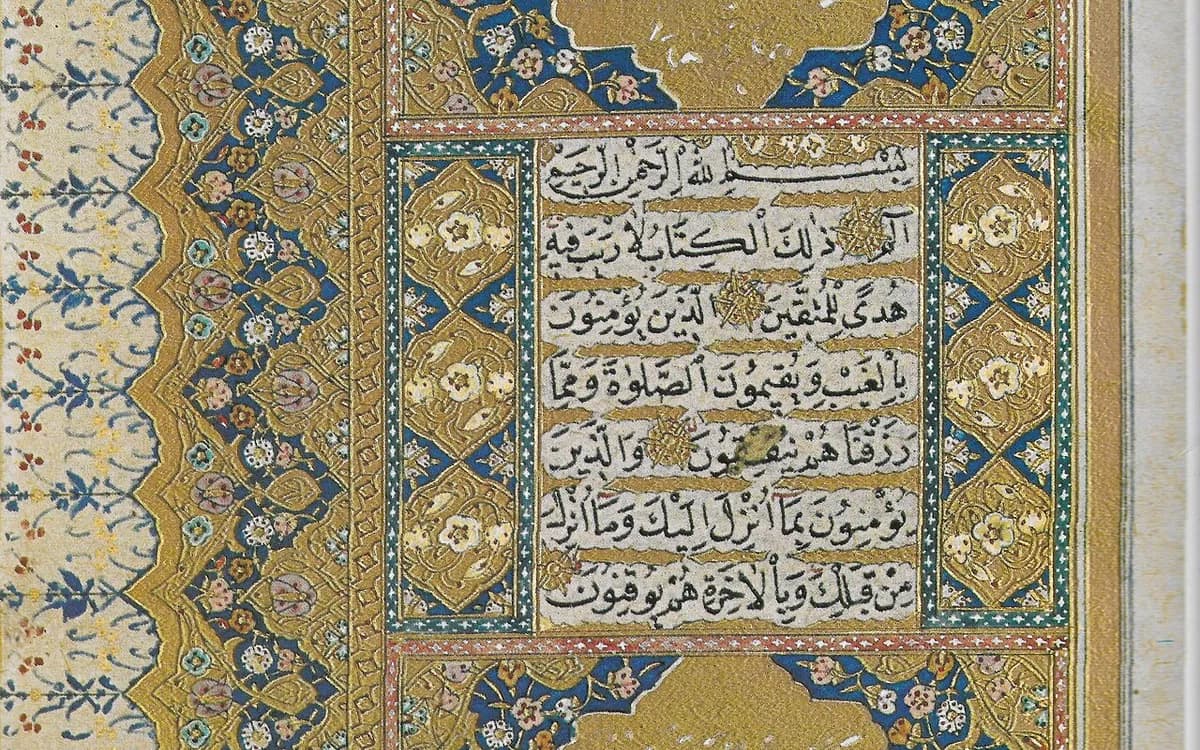 بِسْمِ اللهِ الرَّحْمٰنِ الرَّحِيمِ
الٓمٓ ذٰلِكَ الْكِتَابُ لَا رَيْبَ فِيهِ
هُدًى لِلْمُتَّقِينَ الَّذِينَ يُؤْمِنُونَ
بِالْغَيْبِ وَيُقِيمُونَ الصَّلٰوةَ وَمِمَّا
رَزَقْنَاهُمْ يُنْفِقُونَ وَالَّذِينَ
يُؤْمِنُونَ بِمَآ اُنْزِلَ اِلَيْكَ وَمَآ اُنْزِلَ
مِنْ قَبْلِكَ وَبِالْاٰخِرَةِ هُمْ يُوقِنُونَ